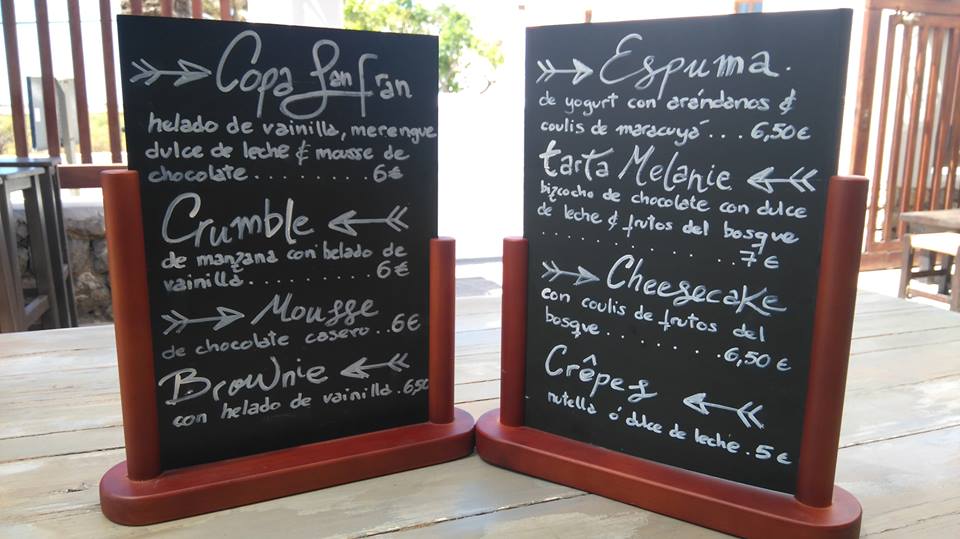 Copa San Fran
helado de vainilla, merengue
dulce de leche & mousse de
chocolate........6€
Crumble
de manzana con helado de
vainilla.........6€
Mousse
de chocolate casero..6€
Brownie
con helado de vainilla.6,50
Espuma.
de yogurt con arándanos &
coulis de maracuyá...6,50€
tarta Melanie
bizcocho de chocolate con dulce
de leche & frutos del bosque
..........7€
Cheesecake
con coulis de frutos del
bosque.......6,50€
Crêpes
nutella ó dulce de leche.5€